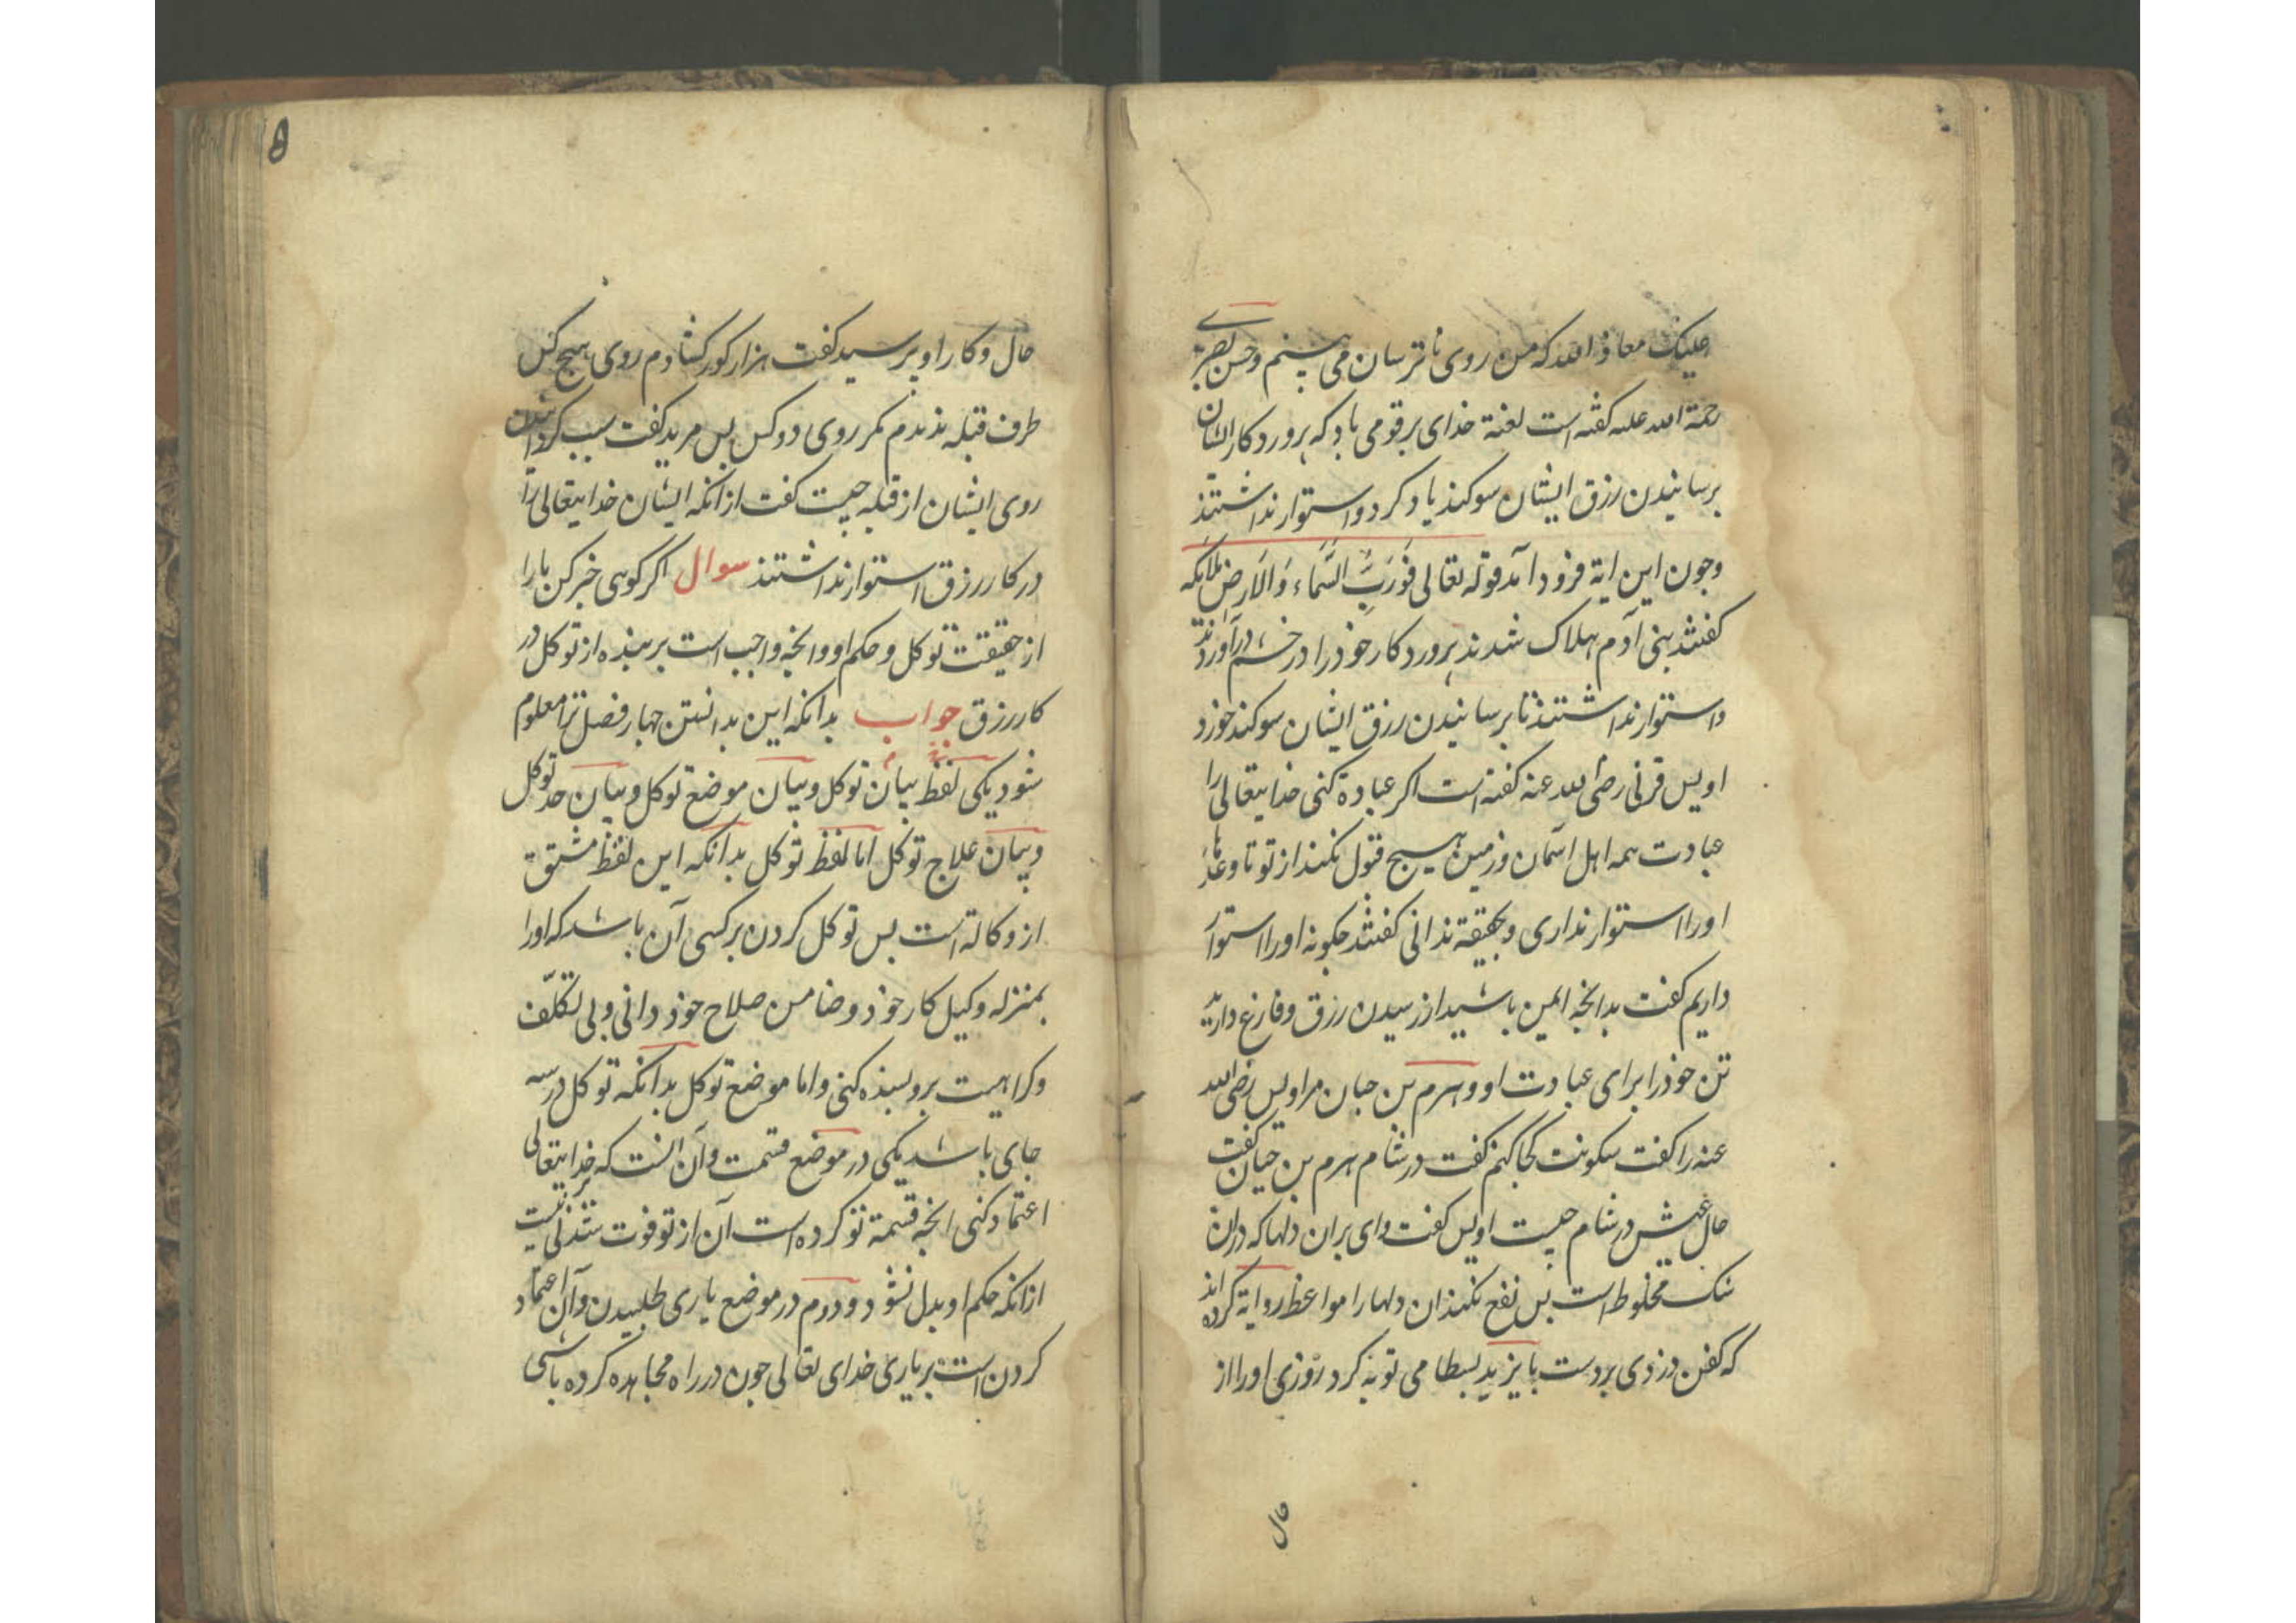 معاذ الله که من روی ناترسان می بینم وحسن بصری
رحمة الله علیه کفته است لعنة خدای بر قومی باد که پروردکار ایشان
برسانیدن رزق ایشان سوکند یاد کرد و استوار نداشتند
وجون این ایة فرود آمد قوله تعالی فَوَرَبِّ السَّمَاء وَالاَرض ملائکه
کفتند بنی آدم هلاک شدند پروردکار خود را در خشم در آوردند
و استوار نداشتند تا برسانیدن رزق ایشان سوکند خورد
اویس قرنی رضی الله عنه کفته است اکر عبادة کنی خدایتعالی را
عبادت همه اهل آسمان و زمین هیچ قبول نکند از تو تا وعدهاء
او را استوار نداری و بحقیقة ندانی کفتند جکونه او را استوار
داریم کفت بدانجه ایمن باشید از رسیدن رزق و فارغ دارید
تن خود را برای عبادت او و هرم بن حبان مر اویس رضی الله
عنه را کفت سکونت کجا کنم کفت در شام هرم بن حیان کفت
حال عیش در شام جیست اویس کفت وای بران دلها که دران
شک مخلوط است بس نفع نکند ان دلها را مواعظ روایة کرده اند
که کفن دزدی بر دست بایزید بسطامی توبه کرد روزی او را از
حال
8
حال و کار او پرسید کفت هزار کور کشادم روی هیچ کس
طرف قبله ندیدم مکر روی دو کس بس مرید کفت سبب کردانیدن
روی ایشان از قبله جیست کفت از انکه ایشان خدایتعالی را
در کار رزق استوار نداشتند سوال اکر کوی خبر کن ما را
از حقیقت توکل و حکم او و انجه واجب است بر بنده از توکل در
کار رزق جواب بدانکه این بدانستن جهار فصل ترا معلوم
شود یکی بیان لفظ توکل و بیان موضع توکل و بیان حد توکل
و بیان علاج توکل اما لفظ توکل بدانکه این لفظ مشتق
از وکالة است بس توکل کردن بر کسی آن باشد که او را
بمنزله وکیل کار خود و ضامن صلاح خود دانی و بی تکلّف
و کراهیت برو بسنده کنی و اما موضع توکل بدانکه توکل در سه
جای باشد یکی در موضع قسمت و آن انست که بر خدایتعالی
اعتماد کنی انجه قسمة تو کرده است آن از تو فوت شدنی نیست
از انکه حکم او بدل نشود و دوم در موضع یاری طلبیدن و آن اعتماد
کردن است بر یاری خدای تعالی جون در راه مجاهده کرده باشی